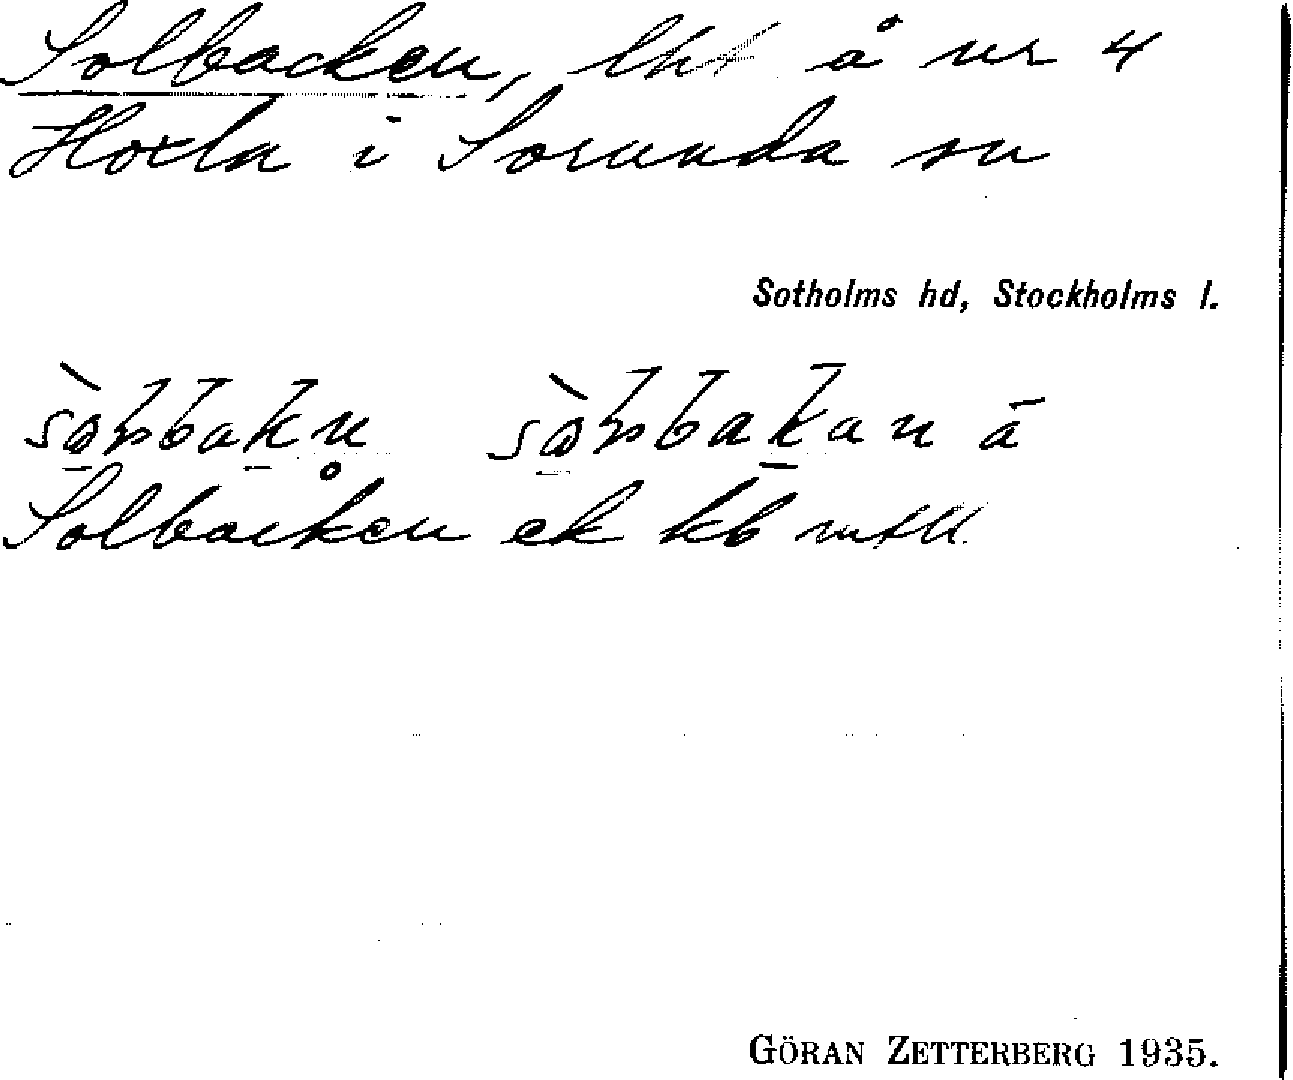 Solbacken, lht å nr 4
Hoxla i Sorunda sn
Sotholms hd, Stockholms l.
Solbacken ek kb mtll.
GÖRAN ZETTERBERG 1935.